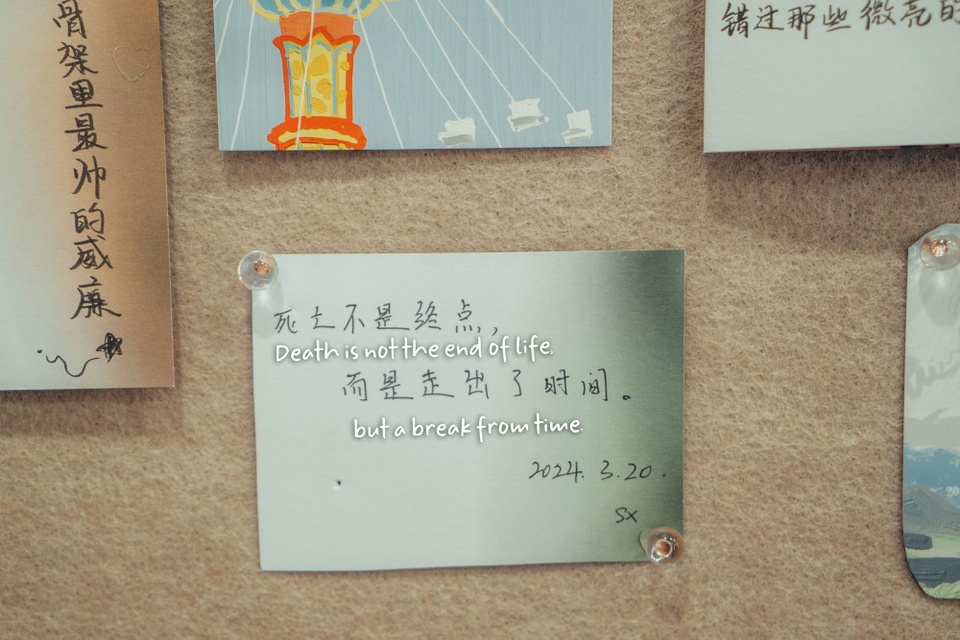 骨架里最帅的威廉
错过那些微亮的
死亡不是终点，
Death is not the end of life,
而是走出了时间。
but a break from time.
2024. 3. 20.
SX